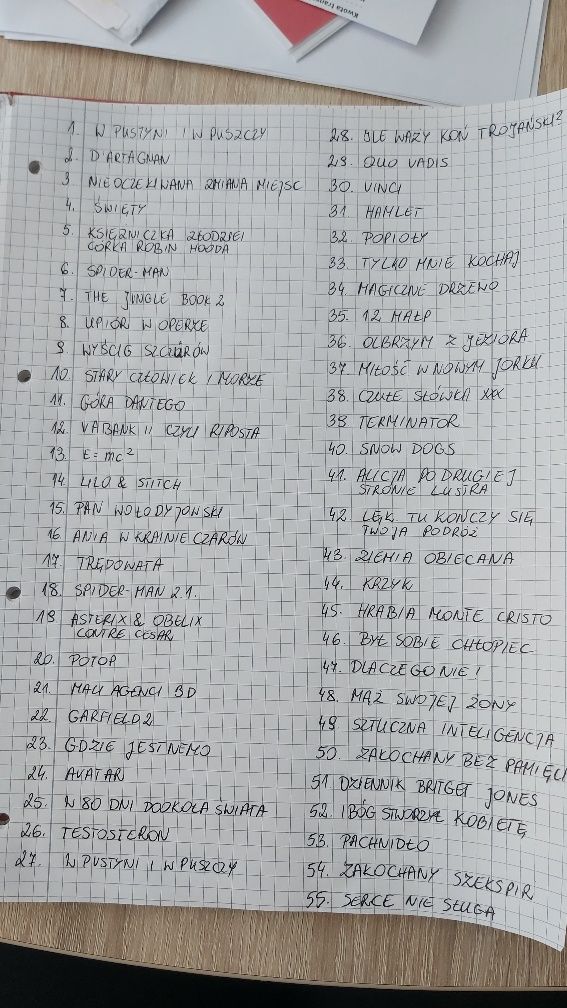 Kwota
1. W PUSTYNI I W PUSZCZY
2. D'ARTAGNAN
3. NIEOCZEKIWANA ZMIANA MIEJSC
4. ŚWIĘTY
5. KSIĘŻNICZKA ZŁODZIEI
CÓRKA ROBIN HOODA
6. SPIDER-MAN
7. THE JUNGLE BOOK 2
8. UPIÓR W OPERZE
9. WYŚCIG SZCZURÓW
10. STARY CZŁOWIEK I MORZE
11. GÓRA DANTEGO
12. VABANK II CZYLI RIPOSTA
13. E=mc²
14. LILO & STITCH
15. PAN WOŁODYJOWSKI
16. ANIA W KRAINIE CZARÓW
17. TRĘDOWATA
18. SPIDER-MAN 2.1.
19. ASTERIX & OBELIX
CONTRE CESAR
20. POTOP
21. MALI AGENCI 3D
22. GARFIELD 2
23. GDZIE JEST NEMO
24. AVATAR
25. W 80 DNI DOOKOŁA ŚWIATA
26. TESTOSTERON
27. W PUSTYNI I W PUSZCZY
28. ILE WAŻY KOŃ TROJAŃSKI?
29. QUO VADIS
30. VINCI
31. HAMLET
32. POPIOŁY
33. TYLKO MNIE KOCHAJ
34. MAGICZNE DRZEWO
35. 12 MAŁP
36. OLBRZYM Z JEZIORA
37. MIŁOŚĆ W NOWYM JORKU
38. CZUŁE SŁÓWKA XXX
39. TERMINATOR
40. SNOW DOGS
41. ALICJA PO DRUGIEJ
STRONIE LUSTRA
42. LĘK. TU KOŃCZY SIĘ
TWOJA PODRÓŻ
43. ZIEMIA OBIECANA
44. KRZYK
45. HRABIA MONTE CRISTO
46. BYŁ SOBIE CHŁOPIEC
47. DLACZEGO NIE!
48. MĄŻ SWOJEJ ŻONY
49. SZTUCZNA INTELIGENCJA
50. ZAKOCHANY BEZ PAMIĘCI
51. DZIENNIK BRITGET JONES
52. I BÓG STWORZYŁ KOBIETĘ
53. PACHNIDŁO
54. ZAKOCHANY SZEKSPIR
55. SERCE NIE SŁUGA